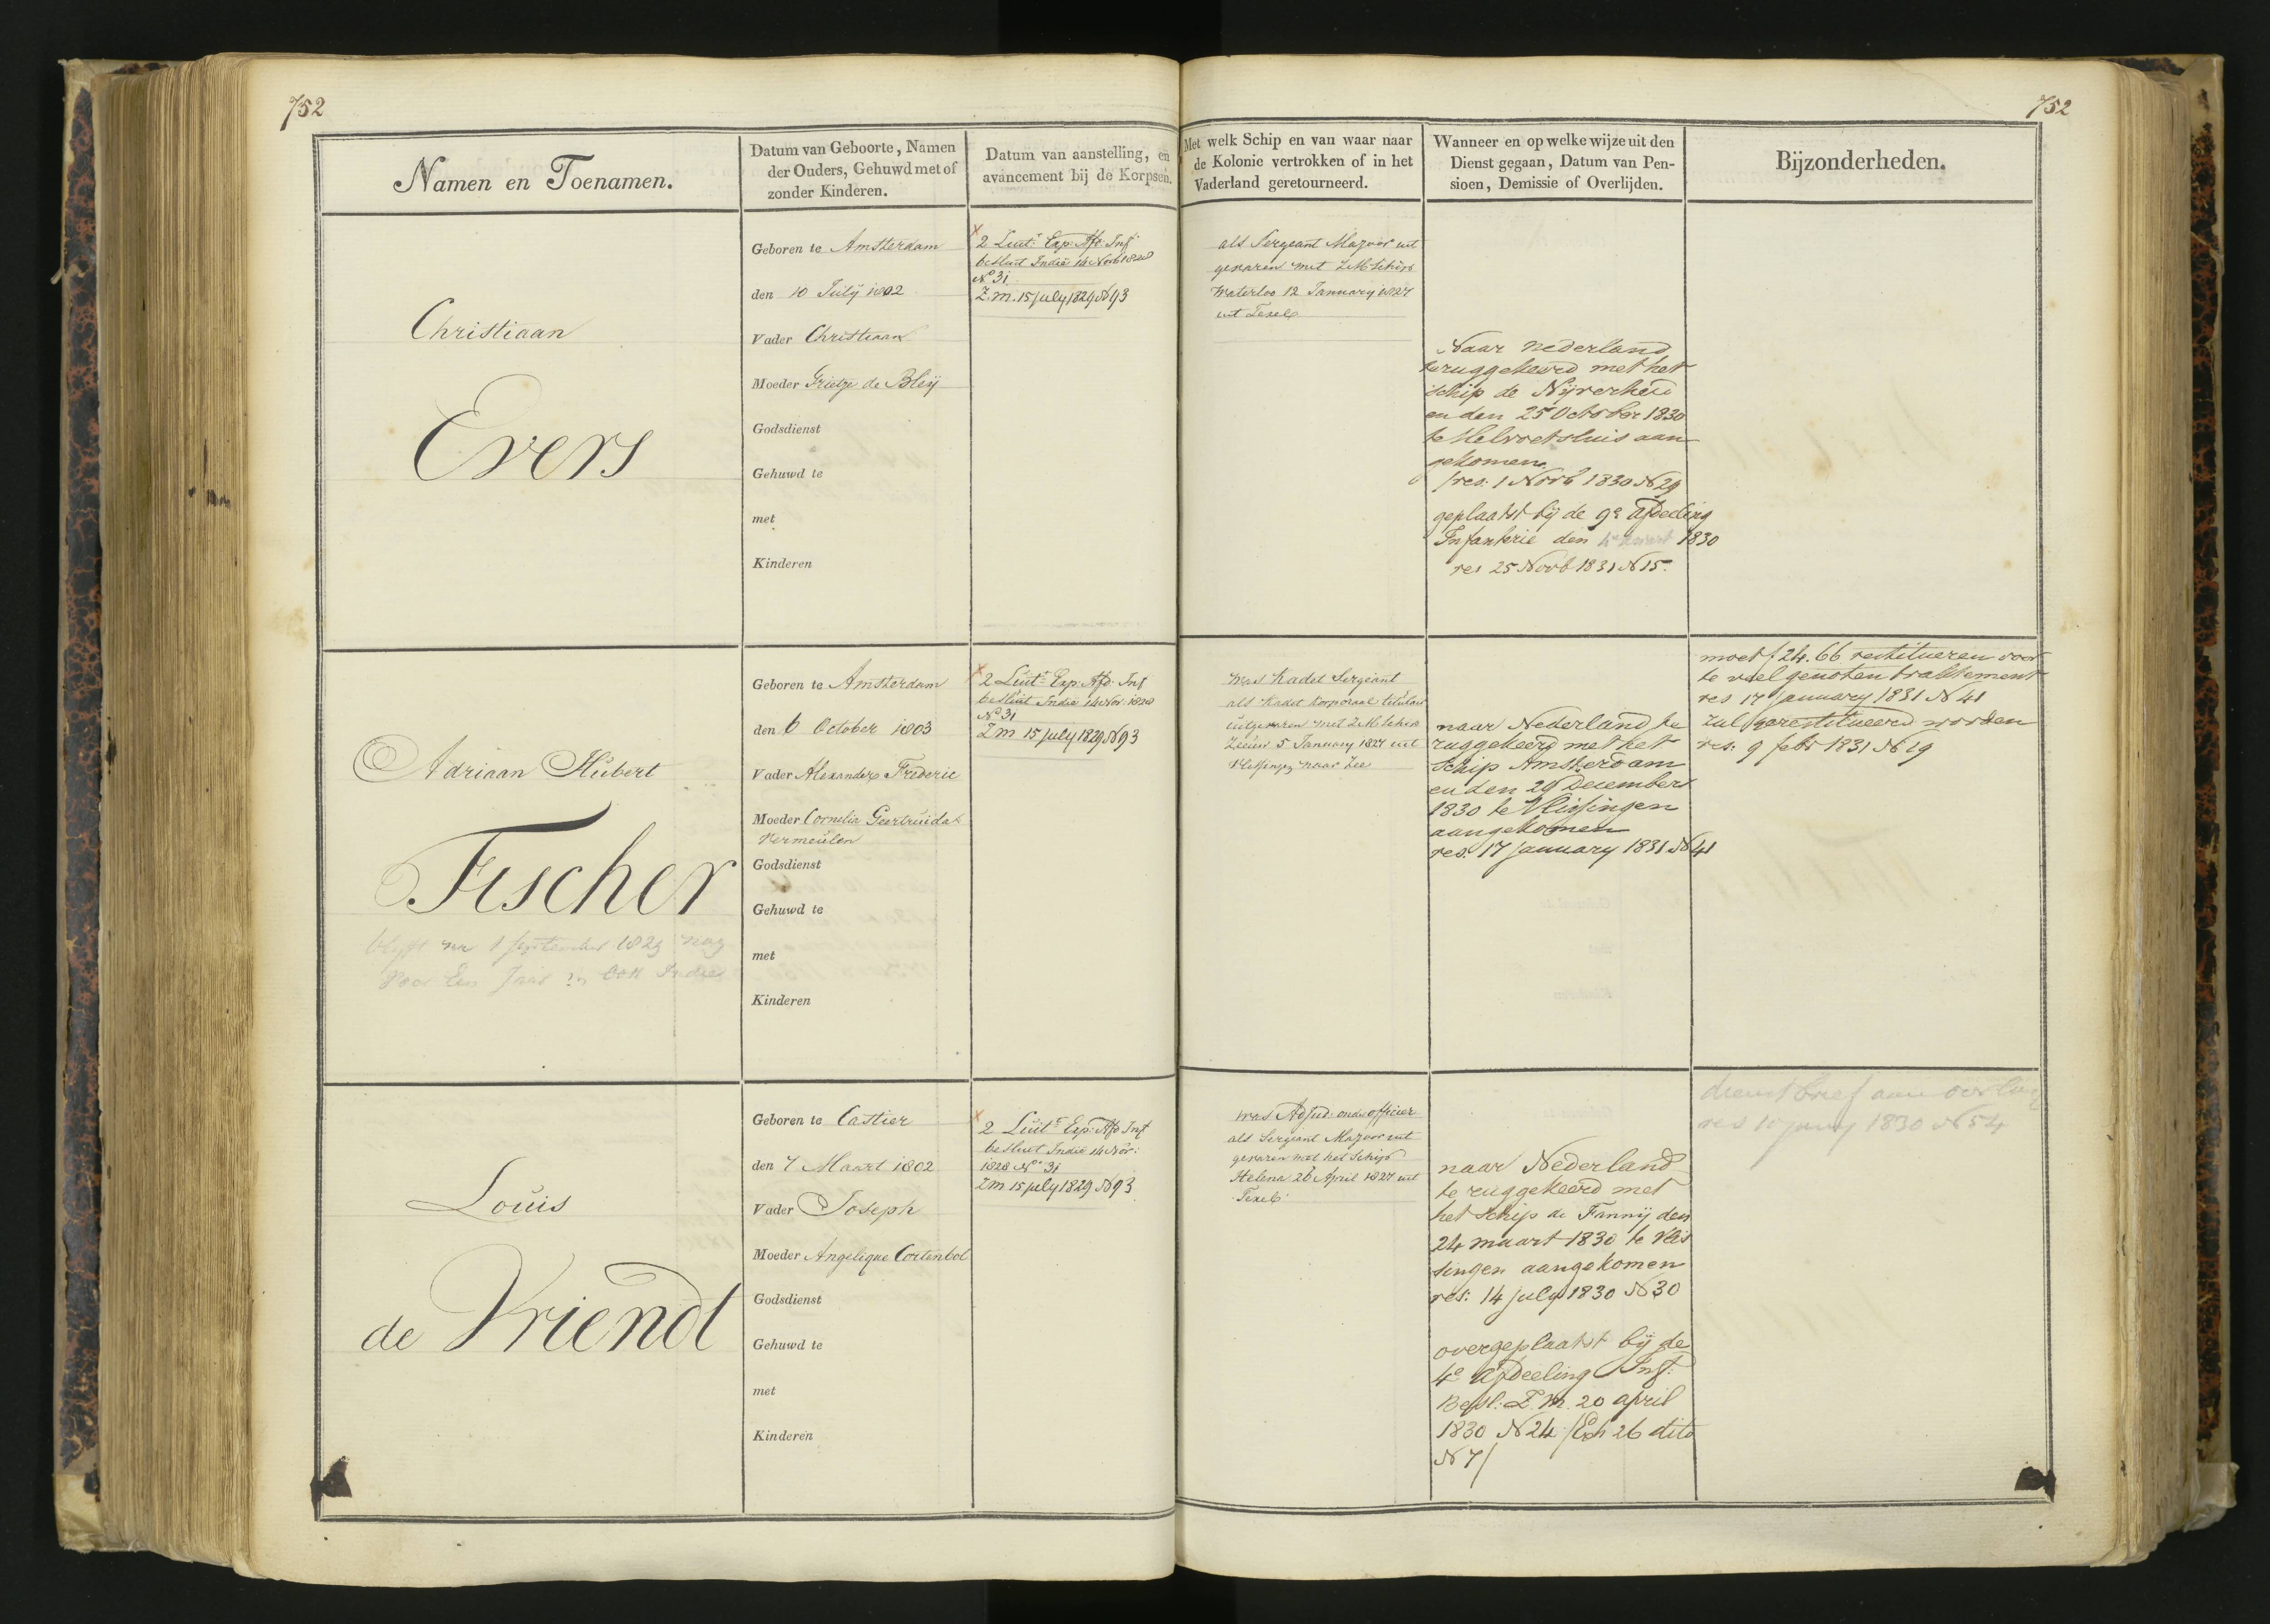 752
752
Namen en Toenamen.
Datum van Geboorte, Namen
der Ouders, Gehuwd met of
zonder Kinderen.
Datum van aanstelling, en
avancement bij de Korpsen.
Met welk Schip en van waar naar
de Kolonie vertrokken of in het
Vaderland geretourneerd.
Wanneer en op welke wijze uit den
Dienst gegaan, Datum van Pen-
sioen, Demissie of Overlijden.
Bijzonderheden.
Christiaan
Evers
Geboren te Amsterdam
den 10 Julij 1802
Vader Christiaan
Moeder Grietje de Bleij
Godsdienst
Gehuwd te
met
Kinderen
2 Luit. Exp. Afd. Inf
besluit Indië 14 Novb 1828
No 31
Z.M. 15 july 1829 N 93
als Sergeant Majoor uit
gevaren met ZM Schip
Waterloo 12 January 1827
uit Texel
Naar Nederland
teruggekeerd met het
schip de Nijverheid
en den 25 October 1830
te Helvoetsluis aan
gekomen
res. 1 Novb 1830 N 29
geplaatst bij de 9e afdeeling
Infanterie den 1830
res 25 Novb 1831 N 15.
Adriaan Hubert
Fischer
blijft na 1 september 1829 nog
voor Een Jaar in Oost Indie
Geboren te Amsterdam
den 6 October 1803
Vader Alexander Frederic
Moeder Cornelia Geertruida
Vermeulen
Godsdienst
Gehuwd te
met
Kinderen
2 Luit. Exp. Afd. Inf
besluit Indië 14 Nov. 1828
No 31
Z M 15 july 1829 N 93
was Kadet Sergeant
als Kadet Korporaal titulair
uitgevaren met Z M Schip
Zeeuw 5 January 1827 uit
Vlissingen naar Zee
naar Nederland te
ruggekeerd met het
Schip Amsterdam
en den 29 December
1830 te Vlissingen
aangekomen
res. 17 january 1831 N 41
moet f 24.66 restitueren voor
te veel genoten traktement
res 17 january 1831 N 41
zal gerestitueerd worden
res: 9 febr 1831 N 19
Louis
de Vriendt
Geboren te Castier
den 7 Maart 1802
Vader Joseph
Moeder Angelique Cortenbol
Godsdienst
Gehuwd te
met
Kinderen
2 Luit. Exp. Afd Inf
besluit Indië 14 Nov:
1828 No 31
Z M 15 july 1829 N 93
was Adjud: onder officier
als Sergeant Majoor uit
gevaren met het Schip
Helena 26 April 1827 uit
Texel
naar Nederland
teruggekeerd met
het schip de Fannij den
24 maart 1830 te Vlis
singen aangekomen
res: 14 july 1830 N 30
overgeplaatst bij de
4e afdeeling Inf:
Besl: Z.M. 20 april
1830 N 24 /Exh 26 dito
N 7/
dienst brief aan
res 1830 N 54